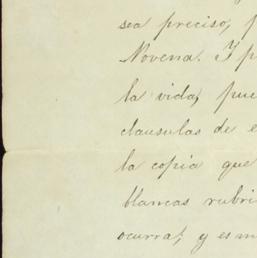 sea preciso, p
Novena. Y p
la vida, pue
clausulas de e
la copia que
blancas rubri
ocurra, y es m